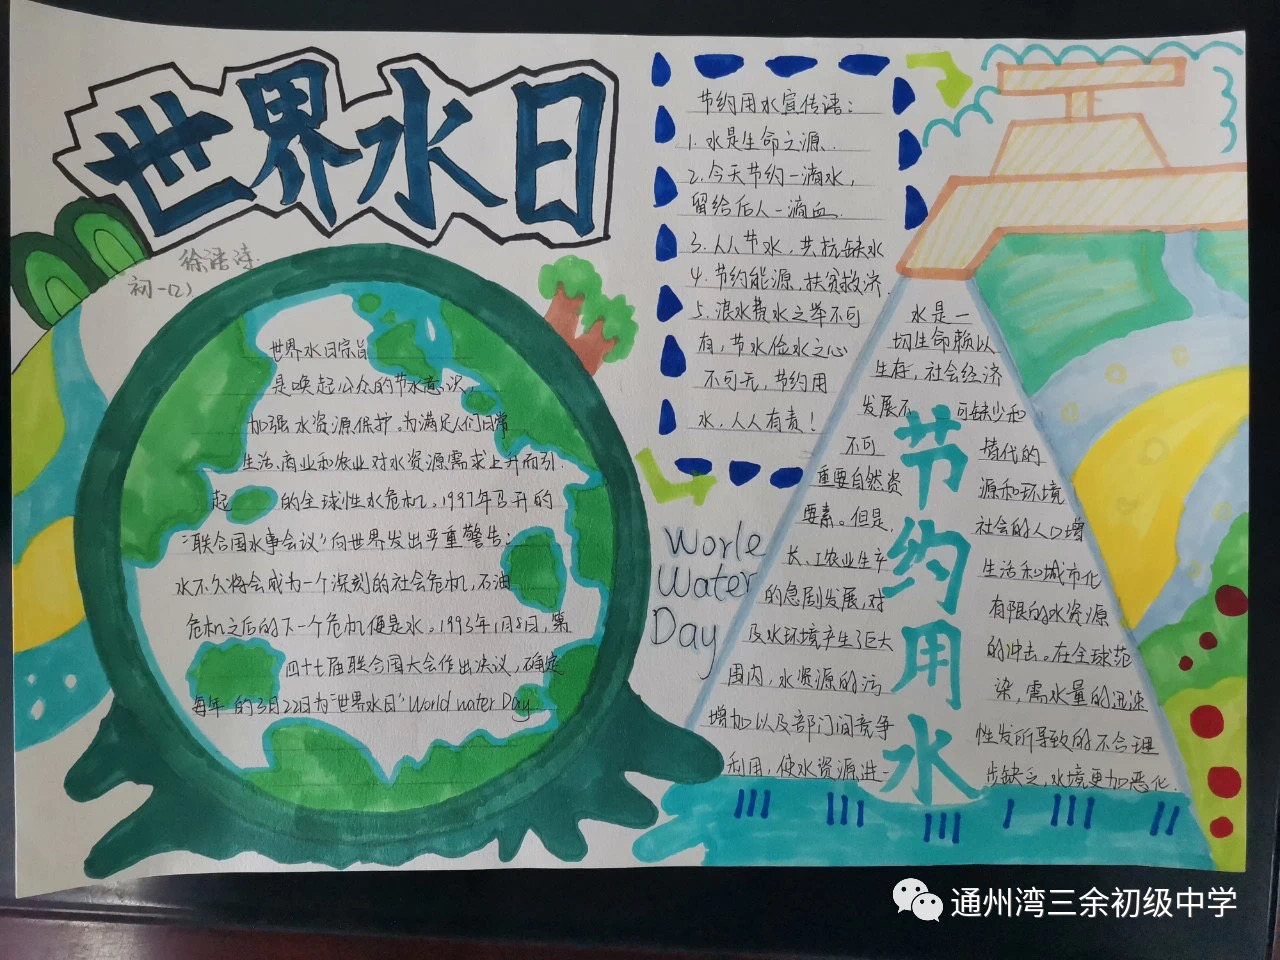 世界水日
徐
初一(2)
世界水日宗旨
是唤起公众的节水意识,
加强水资源保护。为满足人们日常
生活、商业和农业对水资源需求上升而引
起 的全球性水危机。1997年召开的
“联合国水事会议”向世界发出严重警告:
水不久将会成为一个深刻的社会危机,石油
危机之后的下一个危机便是水。1993年1月8日,第
四十七届联合国大会作出决议,确定
每年 的3月22日为“世界水日”World water Day
节约用水宣传语:
1. 水是生命之源.
2. 今天节约一滴水,
留给后人一滴血.
3. 人人节水,共抗缺水
4. 节约能源,扶贫救济.
5. 浪水费水之举不可
有,节水俭水之心
不可无,节约用
水,人人有责!
Worle
Water
Day
水是一
切生命赖以
生存,社会经济
发展不 可缺少和
不可 替代的
重要自然资 源和环境
要素。但是, 社会的人口增
长、工农业生产 生活和城市化
的急剧发展,对 有限的水资源
及水环境产生了巨大 的冲击。在全球范
围内,水资源的污 染,需水量的迅速
增加以及部门间竞争 性发所导致的不合理
利用,使水资源进一 步缺乏,水境更加恶化.
节约用水
通州湾三余初级中学